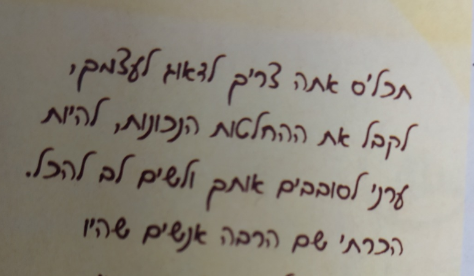 תכל'ס אתה צריך לדאוג לעצמך,
לקבל את ההחלטות הנכונות, להיות
ערני לסובבים אותך ולשים לב להכל.
הכרתי שם הרבה אנשים שהיו